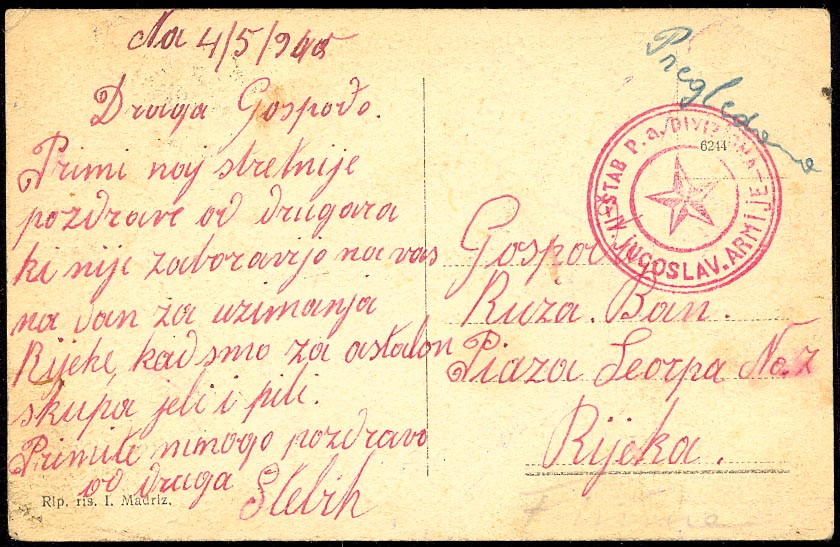 Na 4/5/945
Draga Gospođo.
Primi naj sretnije
pozdrave od drugara
ki nije zaboravijo na vas
na dan za uzimanja
Rijeke, kad smo za astalon
skupa jeli i pili.
Primite mnogo pozdrava
od druga
Rip. ris. I. Madriz.
Pregledano
ŠTAB P.a. DIVIZIONA
IV. JUGOSLAV. ARMIJE
6244
Gospođa
Ruža. Ban.
Piaza Scorpa No. 7
Rijeka.